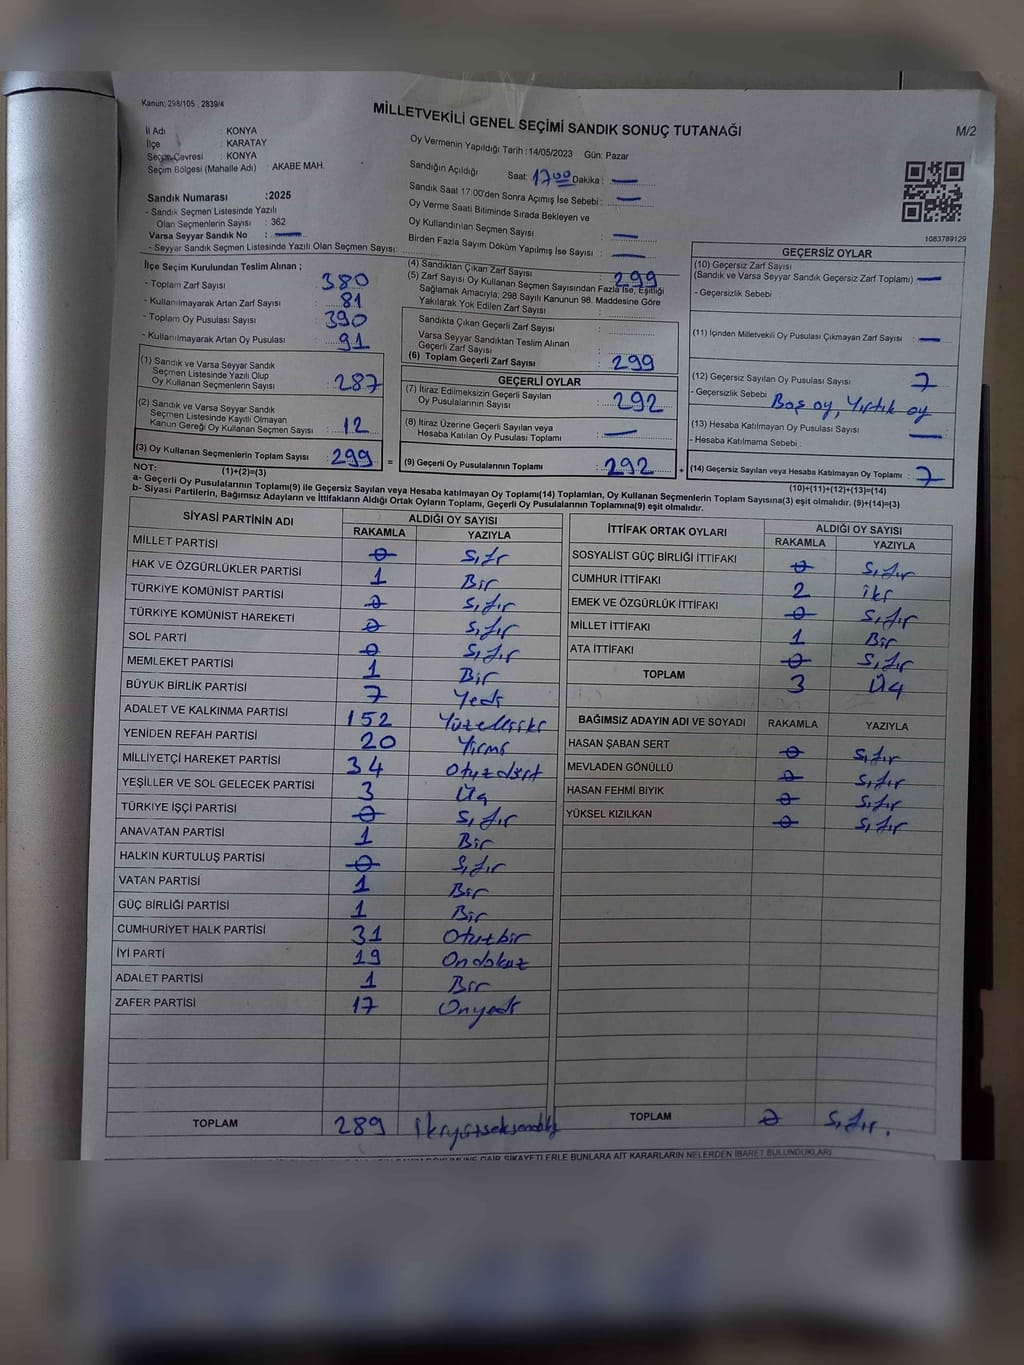 Kanun; 298/105 , 2839/4
MİLLETVEKİLİ GENEL SEÇİMİ SANDIK SONUÇ TUTANAĞI
M/2
İl Adı : KONYA
İlçe : KARATAY
Seçim Çevresi : KONYA
Seçim Bölgesi (Mahalle Adı) : AKABE MAH.
Sandık Numarası :2025
- Sandık Seçmen Listesinde Yazılı
Olan Seçmenlerin Sayısı : 362
Varsa Seyyar Sandık No : —
- Seyyar Sandık Seçmen Listesinde Yazılı Olan Seçmen Sayısı:
Oy Vermenin Yapıldığı Tarih :14/05/2023 Gün: Pazar
Sandığın Açıldığı Saat: 17 00 Dakika : —
Sandık Saat 17:00'den Sonra Açımış İse Sebebi : —
Oy Verme Saati Bitiminde Sırada Bekleyen ve
Oy Kullandırılan Seçmen Sayısı : —
Birden Fazla Sayım Döküm Yapılmış İse Sayısı : —
1083789129
İlçe Seçim Kurulundan Teslim Alınan ;
- Toplam Zarf Sayısı : 380
- Kullanılmayarak Artan Zarf Sayısı : 81
- Toplam Oy Pusulası Sayısı : 390
- Kullanılmayarak Artan Oy Pusulası : 91
(1) Sandık ve Varsa Seyyar Sandık
Seçmen Listesinde Yazılı Olup
Oy Kullanan Seçmenlerin Sayısı : 287
(2) Sandık ve Varsa Seyyar Sandık
Seçmen Listesinde Kayıtlı Olmayan
Kanun Gereği Oy Kullanan Seçmen Sayısı : 12
(3) Oy Kullanan Seçmenlerin Toplam Sayısı : 299 =
(1)+(2)=(3)
(4) Sandıktan Çıkan Zarf Sayısı : 299
(5) Zarf Sayısı Oy Kullanan Seçmen Sayısından Fazla İse, Eşitliği
Sağlamak Amacıyla; 298 Sayılı Kanunun 98. Maddesine Göre
Yakılarak Yok Edilen Zarf Sayısı :
Sandıkta Çıkan Geçerli Zarf Sayısı :
Varsa Seyyar Sandıktan Teslim Alınan
Geçerli Zarf Sayısı :
(6) Toplam Geçerli Zarf Sayısı : 299
GEÇERLİ OYLAR
(7) İtiraz Edilmeksizin Geçerli Sayılan
Oy Pusulalarının Sayısı : 292
(8) İtiraz Üzerine Geçerli Sayılan veya
Hesaba Katılan Oy Pusulası Toplamı : —
(9) Geçerli Oy Pusulalarının Toplamı : 292 +
GEÇERSİZ OYLAR
(10) Geçersiz Zarf Sayısı
(Sandık ve Varsa Seyyar Sandık Geçersiz Zarf Toplamı) : —
- Geçersizlik Sebebi :
(11) İçinden Milletvekili Oy Pusulası Çıkmayan Zarf Sayısı : —
(12) Geçersiz Sayılan Oy Pusulası Sayısı : 7
- Geçersizlik Sebebi : Boş oy, Yırtık oy
(13) Hesaba Katılmayan Oy Pusulası Sayısı : —
- Hesaba Katılmama Sebebi :
(14) Geçersiz Sayılan veya Hesaba Katılmayan Oy Toplamı : 7
(10)+(11)+(12)+(13)=(14)
NOT:
a- Geçerli Oy Pusulalarının Toplamı(9) ile Geçersiz Sayılan veya Hesaba katılmayan Oy Toplamı(14) Toplamları, Oy Kullanan Seçmenlerin Toplam Sayısına(3) eşit olmalıdır. (9)+(14)=(3)
b- Siyasi Partilerin, Bağımsız Adayların ve İttifakların Aldığı Ortak Oyların Toplamı, Geçerli Oy Pusulalarının Toplamına(9) eşit olmalıdır.
SİYASİ PARTİNİN ADI ALDIĞI OY SAYISI
RAKAMLA YAZIYLA
MİLLET PARTİSİ 0 Sıfır
HAK VE ÖZGÜRLÜKLER PARTİSİ 1 Bir
TÜRKİYE KOMÜNİST PARTİSİ 0 Sıfır
TÜRKİYE KOMÜNİST HAREKETİ 0 Sıfır
SOL PARTİ 0 Sıfır
MEMLEKET PARTİSİ 1 Bir
BÜYÜK BİRLİK PARTİSİ 7 Yedi
ADALET VE KALKINMA PARTİSİ 152 Yüzelliiki
YENİDEN REFAH PARTİSİ 20 Yirmi
MİLLİYETÇİ HAREKET PARTİSİ 34 Otuzdört
YEŞİLLER VE SOL GELECEK PARTİSİ 3 Üç
TÜRKİYE İŞÇİ PARTİSİ 0 Sıfır
ANAVATAN PARTİSİ 1 Bir
HALKIN KURTULUŞ PARTİSİ 0 Sıfır
VATAN PARTİSİ 1 Bir
GÜÇ BİRLİĞİ PARTİSİ 1 Bir
CUMHURİYET HALK PARTİSİ 31 Otuzbir
İYİ PARTİ 19 Ondokuz
ADALET PARTİSİ 1 Bir
ZAFER PARTİSİ 17 Onyedi
TOPLAM 289
İTTİFAK ORTAK OYLARI ALDIĞI OY SAYISI
RAKAMLA YAZIYLA
SOSYALİST GÜÇ BİRLİĞİ İTTİFAKI 0 Sıfır
CUMHUR İTTİFAKI 2 iki
EMEK VE ÖZGÜRLÜK İTTİFAKI 0 Sıfır
MİLLET İTTİFAKI 1 Bir
ATA İTTİFAKI 0 Sıfır
TOPLAM 3 Üç
BAĞIMSIZ ADAYIN ADI VE SOYADI RAKAMLA YAZIYLA
HASAN ŞABAN SERT 0 Sıfır
MEVLADEN GÖNÜLLÜ 0 Sıfır
HASAN FEHMİ BIYIK 0 Sıfır
YÜKSEL KIZILKAN 0 Sıfır
TOPLAM 0 Sıfır.
DÖKÜMÜNE DAİR ŞİKAYETLERLE BUNLARA AİT KARARLARIN NELERDEN İBARET BULUNDUKLARI